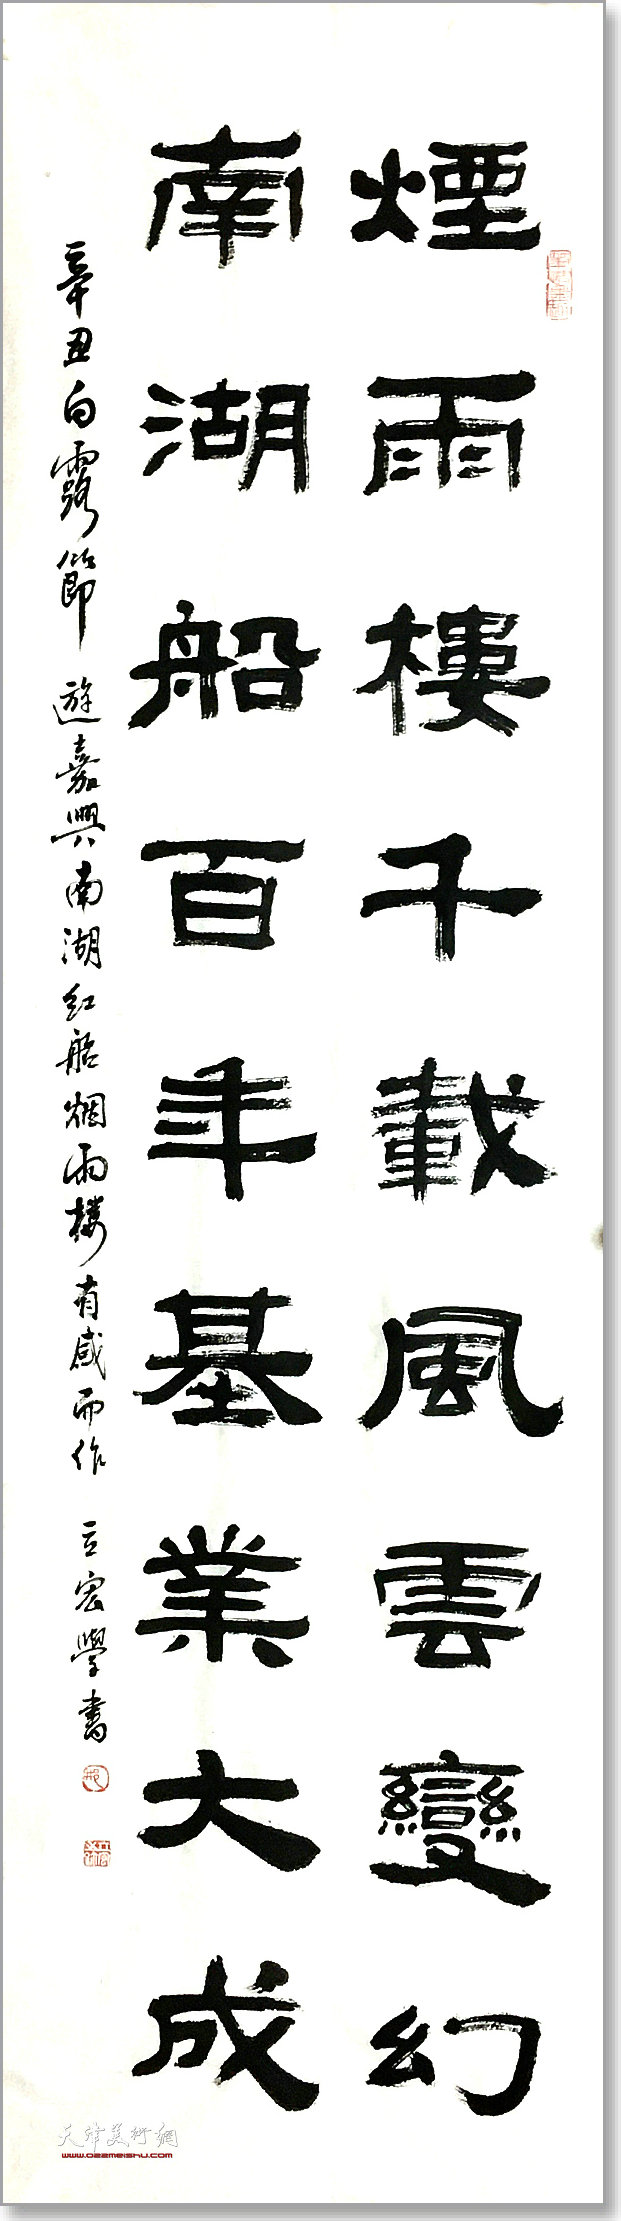 煙雨樓千載風雲變幻
南湖船百年基業大成
辛丑白露節遊嘉興南湖红船烟雨楼有感而作 立宏學書
天津美術網
www.022meishu.com